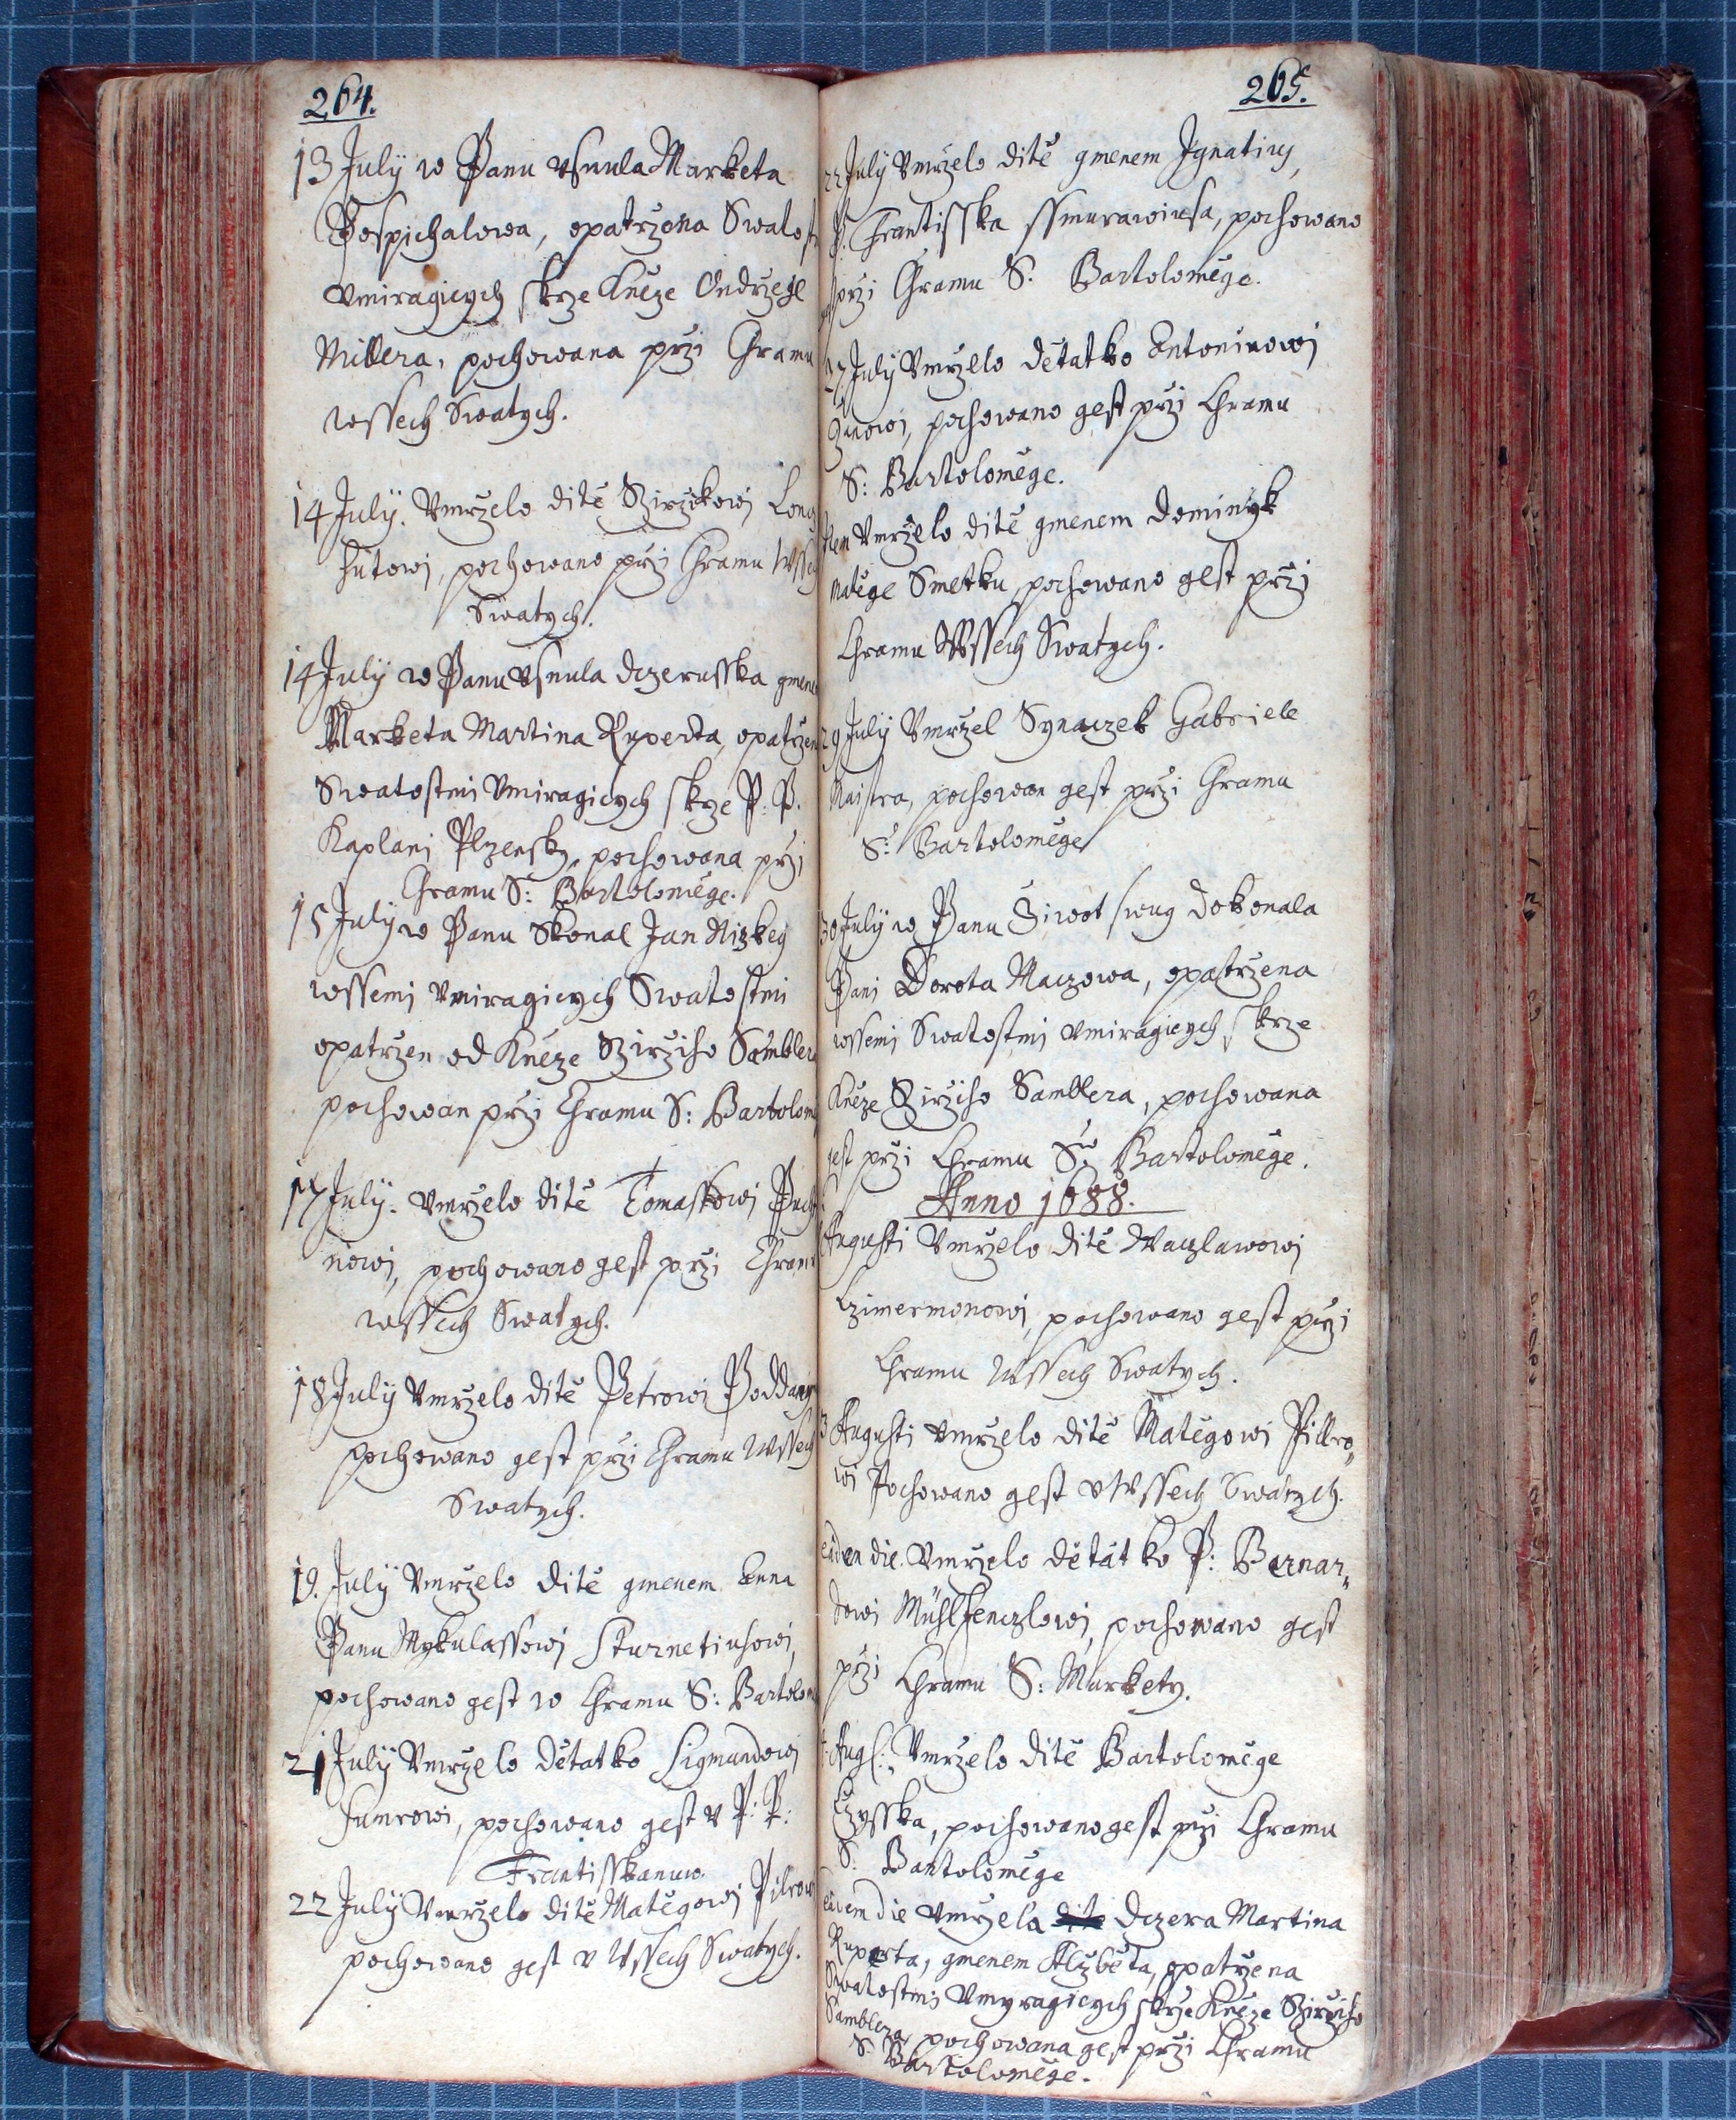 264.
13 July w Panu usnula Marketa
Pospichalowa, opatrzena Swatost
umiragicych skrze Kněze Ondrzege
Millera, pochowana przi Chramu
wssech Swatych.
14 July. Umrzelo ditě Girzikowi
hutowi, pochowano przi Chramu Wssech
Swatych.
14 July w Panu usnula dczerusska gmene
Marketa Martina Ruperta, opatrzen
Swatostmi umiragicych skrze P. P.
Kaplani Plzensky, pochowana przi
Chramu S: Bartoloměge.
15 July w Panu Skonal Jan Nizkey
wssemi umiragicych Swatostmi
opatrzen od Kněze Girziho Samblera
pochowan przi Chramu S: Bartolom
17 July. umrzelo ditě Tomasskowi
nowi, pochowano gest przi Chramu
wssech Swatych.
18 July umrzelo ditě Petrowi Poddan
pochowano gest przi Chramu Wssech
Swatych.
19. July umrzelo ditě gmenem Anna
Panu Mykulassowi Sturnetiusowi,
pochowano gest w Chramu S: Bartolom
21 July umrzelo dětatko Sigmundowi
Humrowi, pochowano gest u P: P:
Frantisskanuw.
22 July umrzelo ditě Matěgowi Pilrowi
pochowano gest u Wssech Swatych.
265.
22 July umrzelo ditě gmenem Ignatius,
P. Frantisska ssmurawiusa, pochowano
przi Chramu S: Bartolomege.
27 July umrzelo dětatko Antoninowi
pochowano gest przi Chramu
S: Bartolomege.
Item umrzelo ditě gmenem Dominyk
Matěge Smetku, pochowano gest przi
Chramu Wssech Swatych.
29 July umrzel Synaczek Gabriele
Maistra, pochowan gest przi Chramu
S: Bartolomege
30 July w Panu Ziwot swug dokonala
Pani Dorota Maczowa, opatrzena
wssemi Swatostmi umiragicych skrze
Kněze Girziho Samblera, pochowana
gest przi Chramu S: Bartolomege.
Anno 1688.
Augusti umrzelo ditě Waczlawowi
Czimermonowi, pochowano gest przi
Chramu Wssech Swatych.
3 Augusti umrzelo ditě Matěgowi Pillro„
wi Pochowano gest u Wssech Swatych.
eaden die. umrzelo dětátko P: Bernar„
dowi Mühlhenczlowi, pochowano gest
przi Chramu S: Markety.
Aug: umrzelo ditě Bartoloměge
Czysska, pochowano gest przi Chramu
S: Bartoloměge
eadem die umrzela dite Dczera Martina
Ruperta, gmenem Alzběta, opatrzena
Swatostmi umyragicych skrze Kněze Girziho
Samblera, pochowana gest przi Chramu
S: Bartoloměge.